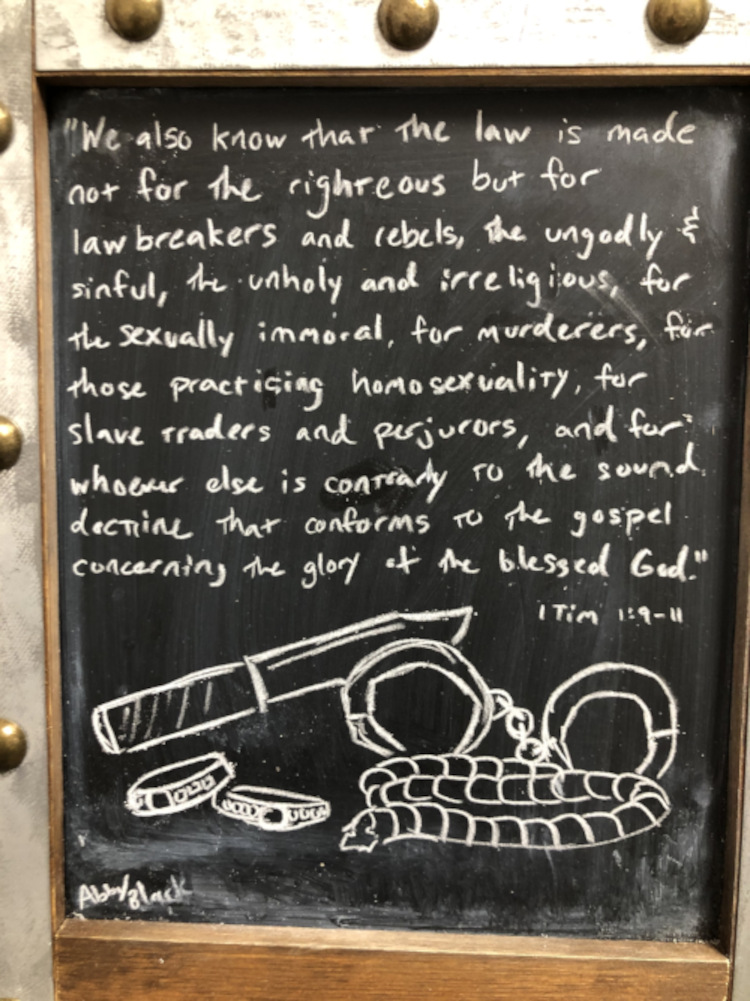 "We also know that the law is made
not for the righteous but for
lawbreakers and rebels, the ungodly &
sinful, the unholy and irreligious, for
the sexually immoral, for murderers, for
those practicing homosexuality, for
slave traders and perjurors, and for
whoever else is contrary to the sound
doctrine that conforms to the gospel
concerning the glory of the blessed God."
1 Tim 1:9-11
Abby Black